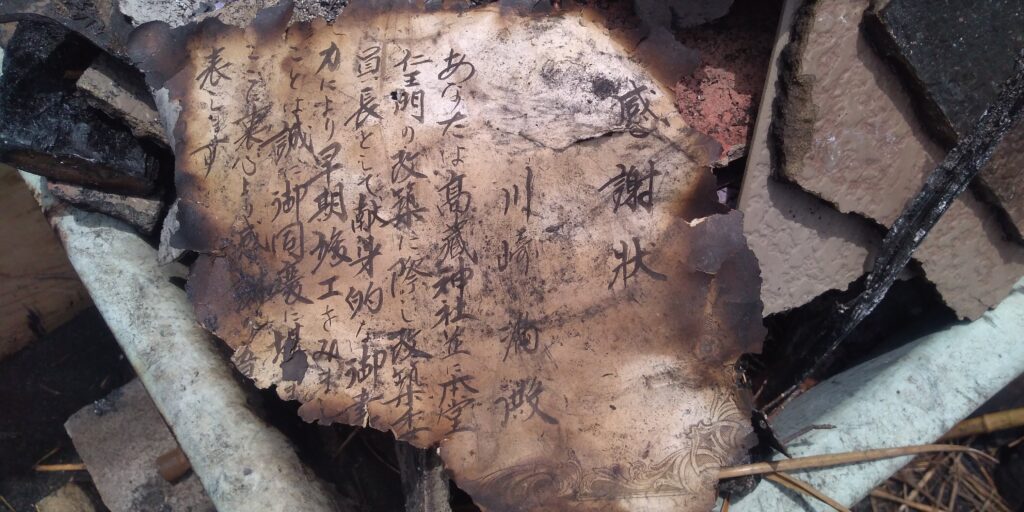 感謝狀
川崎 殿
あなたは高蔵神社並に本堂
仁王門の改築に際し改築委
員長として献身的な御
力により早期竣工をみま
ことは誠に御同慶に堪
ここに衷心より感謝
表します